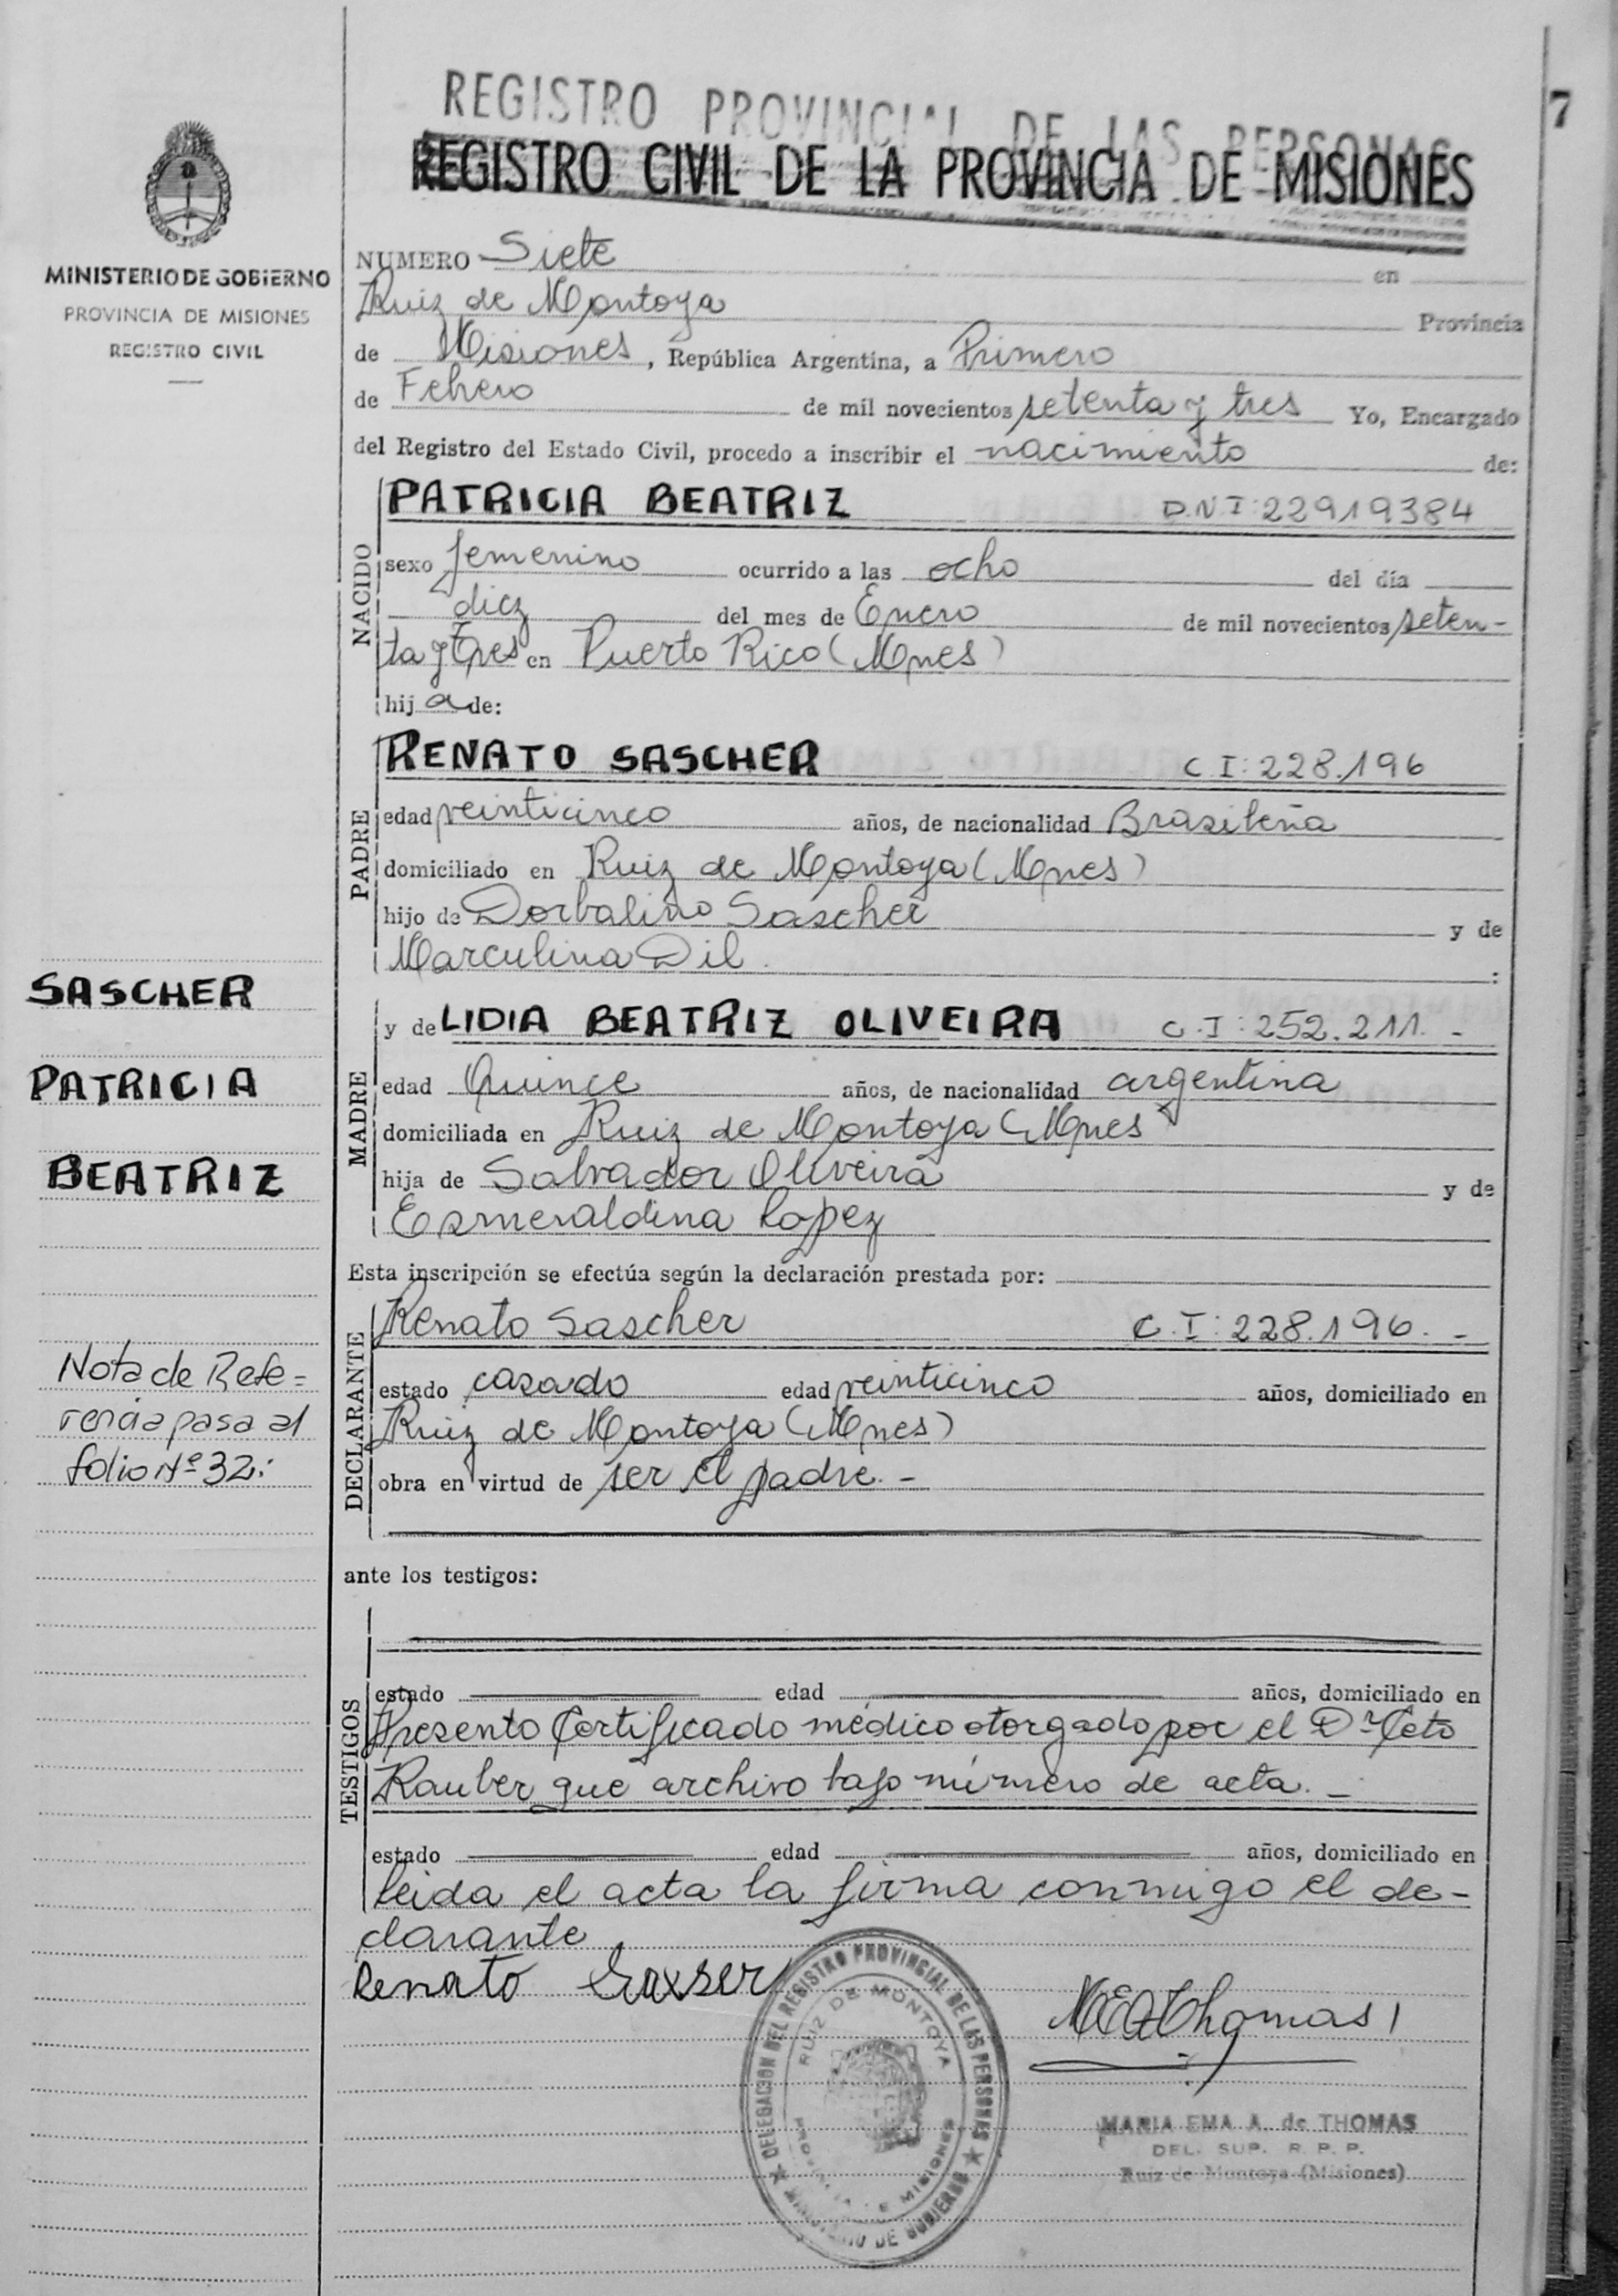 7
REGISTRO PROVINCIAL DE LAS PERSONAS
REGISTRO CIVIL DE LA PROVINCIA DE MISIONES
MINISTERIO DE GOBIERNO
PROVINCIA DE MISIONES
REGISTRO CIVIL
NUMERO Siete en
Ruiz de Montoya Provincia
de Misiones, República Argentina, a Primero
de Febrero de mil novecientos setenta y tres Yo, Encargado
del Registro del Estado Civil, procedo a inscribir el nacimiento de:
NACIDO
PATRICIA BEATRIZ D.N I: 22919384
sexo femenino ocurrido a las ocho del día
diez del mes de Enero de mil novecientos seten-
ta y tres en Puerto Rico (Mnes)
hija de:
PADRE
RENATO SASCHER C I: 228.196
edad veinticinco años, de nacionalidad Brasileña
domiciliado en Ruiz de Montoya (Mnes)
hijo de Dorbalino Sascher y de
Marculina Dil.
MADRE
y de LIDIA BEATRIZ OLIVEIRA C.I: 252.211. -
edad Quince años, de nacionalidad argentina
domiciliada en Ruiz de Montoya (Mnes
hija de Salvador Oliveira y de
Esmeraldina Lopez
SASCHER
PATRICIA
BEATRIZ
Nota de Refe=
rencia pasa al
folio Nº 32:
Esta inscripción se efectúa según la declaración prestada por:
DECLARANTE
Renato Sascher C.I: 228.196. -
estado casado edad veinticinco años, domiciliado en
Ruiz de Montoya (Mnes)
obra en virtud de ser el padre. -
ante los testigos:
TESTIGOS
estado edad años, domiciliado en
Presento Certificado médico otorgado por el Dr
Rauber que archivo bajo número de acta. -
estado edad años, domiciliado en
leida el acta la firma conmigo el de-
clarante
Renato
Thomas
DELEGACION DEL REGISTRO PROVINCIAL DE LAS PERSONAS
RUIZ DE MONTOYA
PROVINCIA DE MISIONES
MINISTERIO DE GOBIERNO
MARIA EMA A. de THOMAS
DEL. SUP. R. P. P.
Ruiz de Montoya (Misiones)